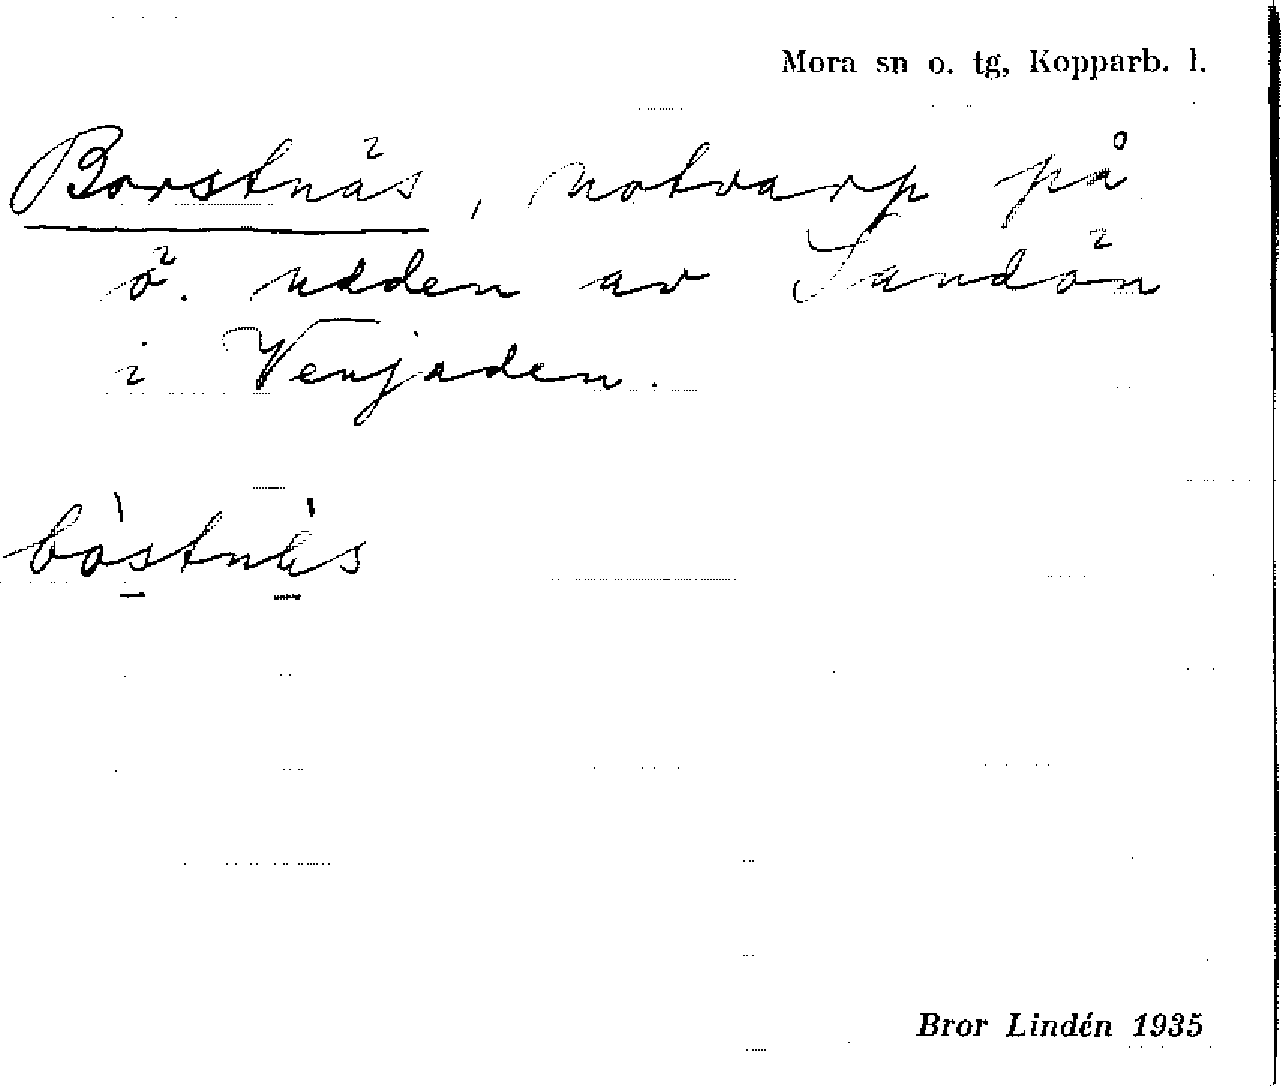 Mora sn o. tg, Kopparb. l.
Borstnäs, notvarp på
ö. udden av Sandön
i Venjaden.
bòstnä̀s
Bror Lindén 1935